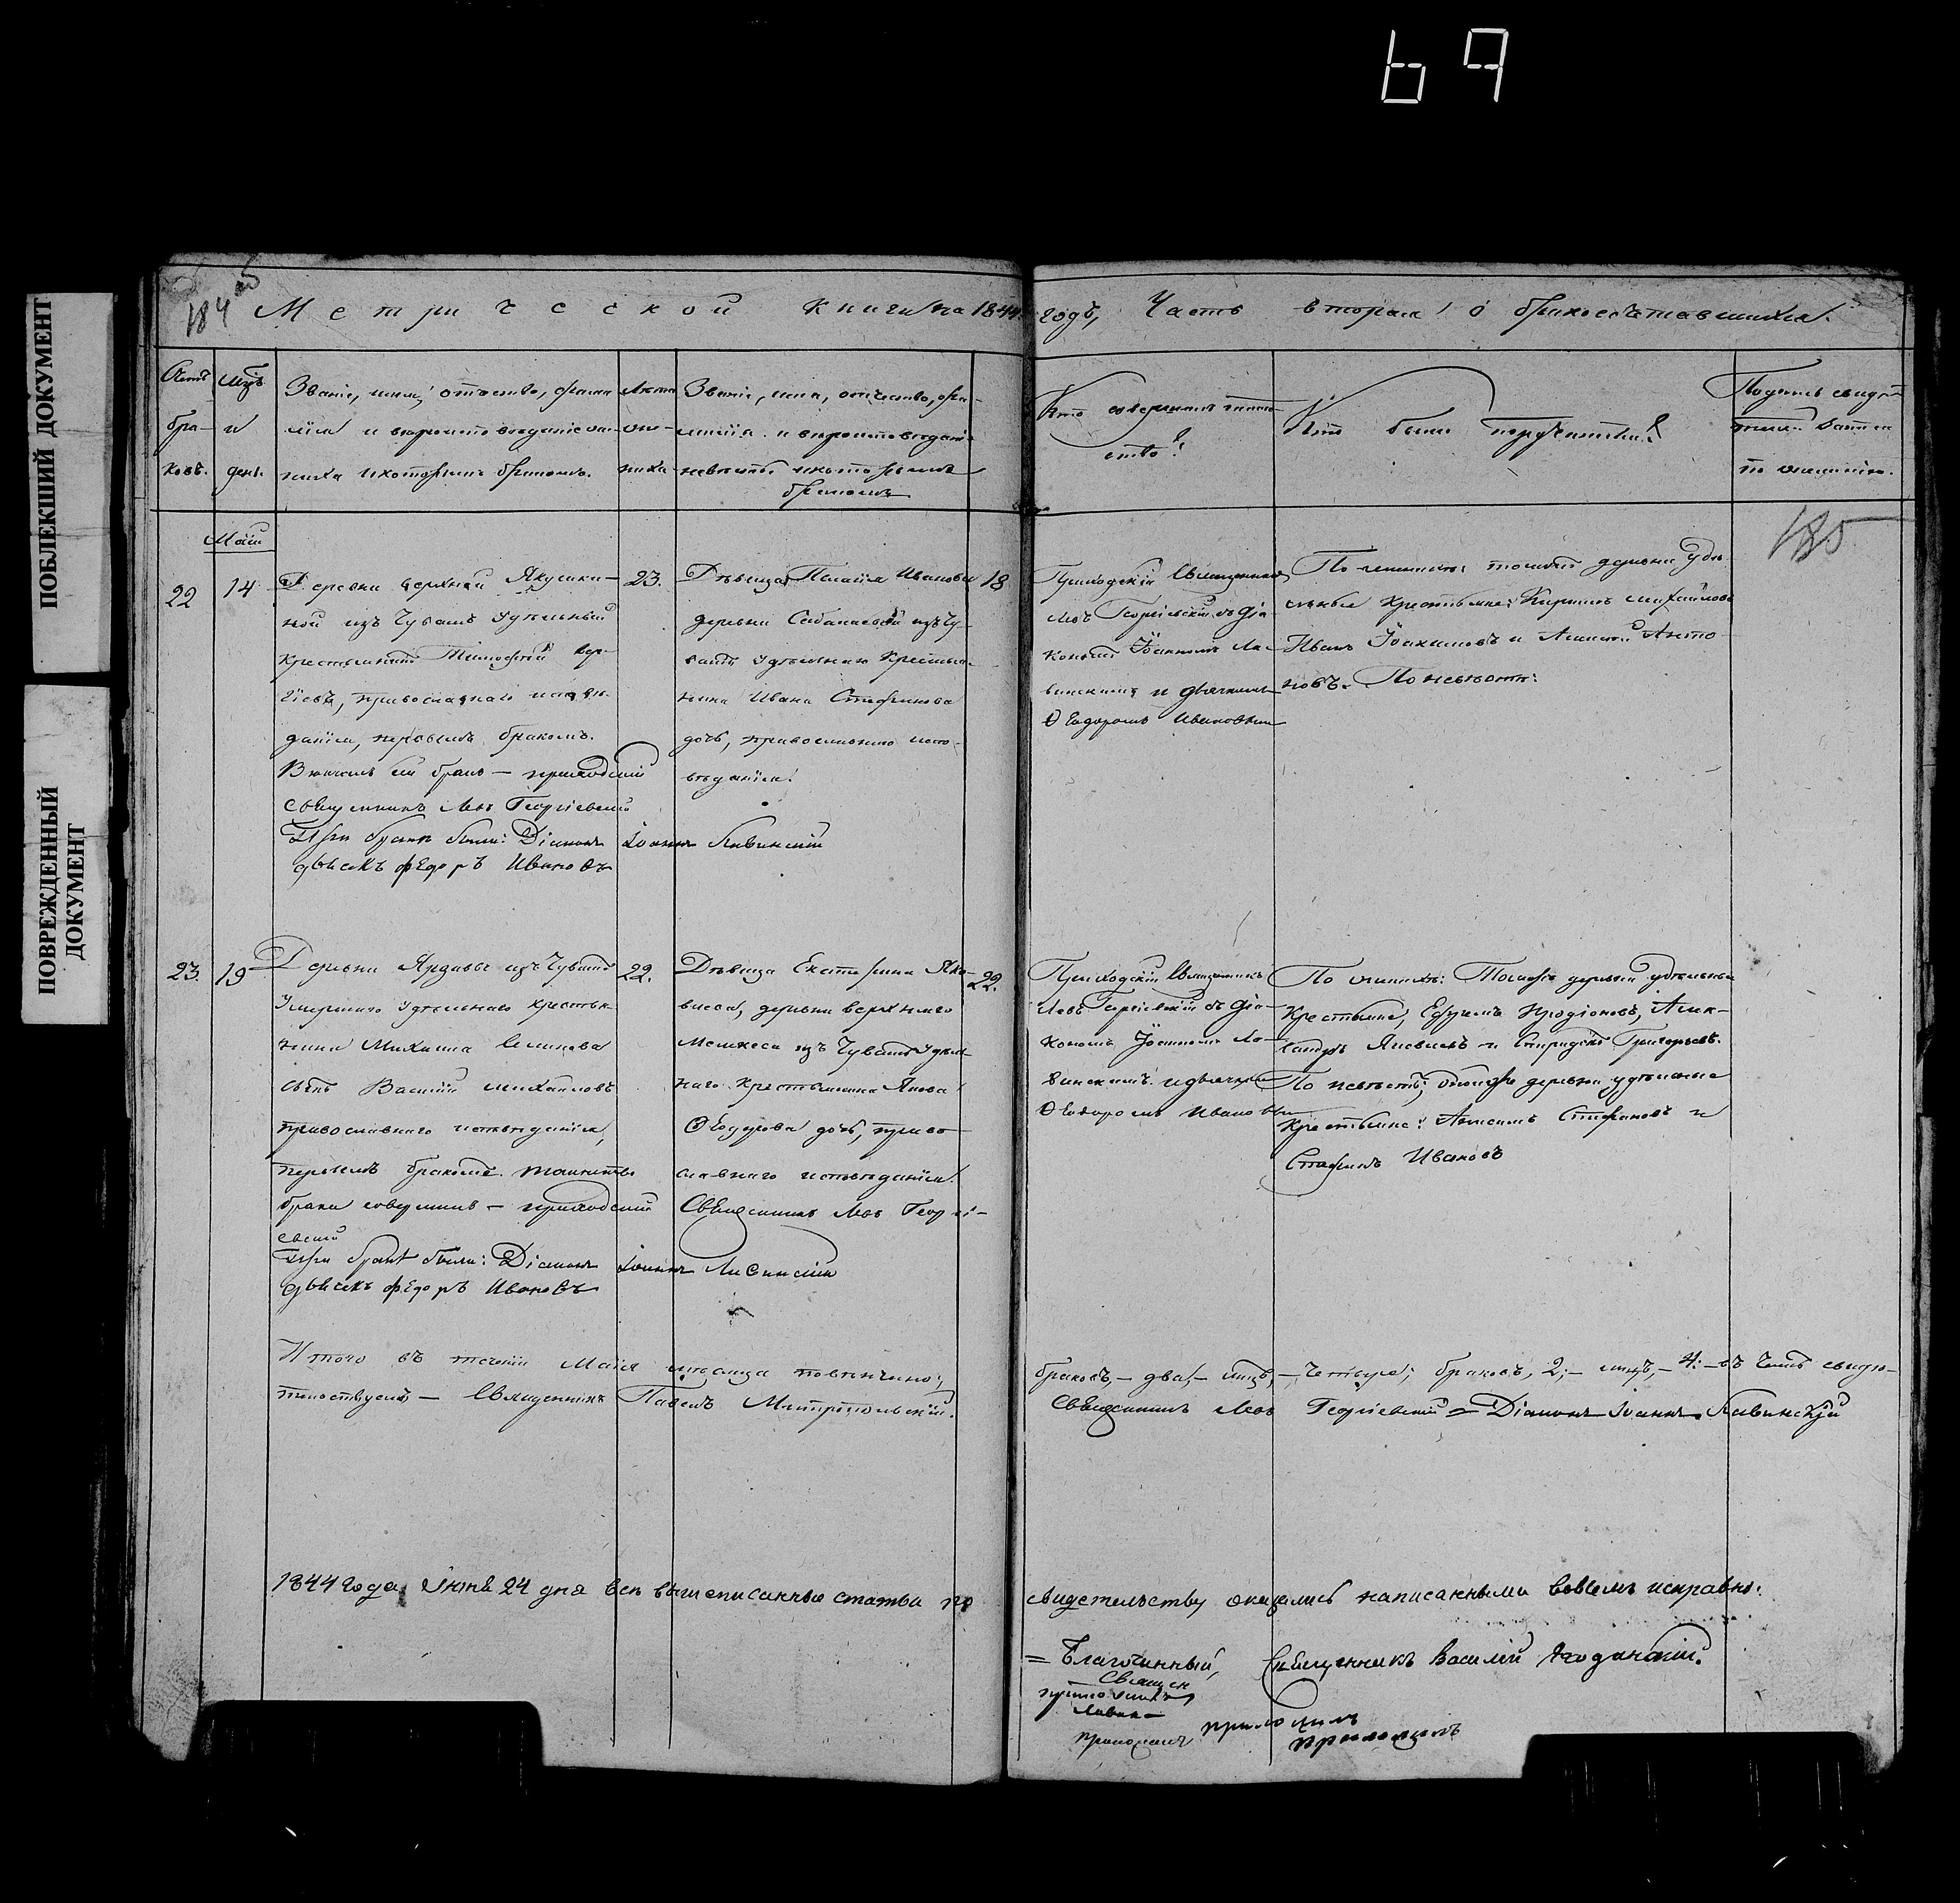 69
ПОБЛЕКШИЙ ДОКУМЕНТ
ПОВРЕЖДЕННЫЙ
ДОКУМЕНТ
184
Метрической книги на 1844
годъ, Часть вторая о бракосочетавшихся.
бра-
ковъ.
Мць
и
день.
Званіе, имя, отчество, фами-
лія и вероисповеданіе же-
ниха и которымъ бракомъ.
Лета
же-
ниха
Званіе, имя, отчество, фа-
милія и вероисповедані
невесты и которымъ
бракомъ
Кто совершалъ таин-
ство?
Кто были поручители?
Подпись свиде-
по желанію.
185
Маій
22
14
Деревни верхней Якушки-
ной изъ Чувашъ Удельный
Крестьянинъ Тимофей
православнаго испове-
данія, первымъ бракомъ.
Венчалъ сей бракъ – приходскій
Священникъ Левъ Георгіевскій
При браке были: Діаконъ Іоаннъ Лавинскій
дьячекъ Федоръ Ивановъ
23.
Девица Пелагія Иванова
деревни Сабакаевой изъ Чу-
вашъ Удельнаго Крестья-
нина Ивана Стефанова
дочь, православнаго испо-
веданія.
18
Приходскій Священникъ
Левъ Георгіевскій съ діа-
кономъ Іоанномъ Ла-
винскимъ и дьячкомъ
Ѳеодоромъ Ивановым
По женихе: тойже деревни Уде-
льные Крестьяне: Кирилъ Михайловъ
Иванъ Іоакимовъ и Алексей Анто-
новъ. По невесте:
23.
19
Деревни изъ Чувашъ
Умершаго Удельнаго крестья-
нина Михаила Семенова
сынъ Василій Михайловъ
православнаго исповеданія,
первымъ бракомъ. таинство
брака совершилъ – приходскій Священникъ Левъ Георгі-
евскій
При браке были: Діаконъ Іоаннъ Лавинскій
дьячекъ Федоръ Ивановъ
22.
Девица Екатерина Яко-
влева, деревни верхняго
Мелекеса изъ Чувашъ Удель-
наго Крестьянина Якова
Ѳеодорова дочь, право-
славнаго исповеданія.
22.
Приходскій Священникъ
Левъ Георгіевскій съ діа-
кономъ Іоанномъ Ла-
винскимъ и дьячкомъ
Ѳеодоромъ Ивановым
По женихе: Тойже деревни удельные
Крестьяне, Ефремъ Иродіоновъ, Алек-
сандръ Яковлевъ и Спиридонъ Григорьевъ.
По невесте: деревни удельные
Крестьяне: Стефановъ и
Ивановъ
Итого въ теченіи Маія месяца повенчано:
браковъ, – два, – лицъ, – четыре; браковъ, 2; – лицъ, – 4: – въ чемъ свиде-
тельствуемъ – Священникъ Павелъ Митропольскій.
Священникъ Левъ Георгіевскій = Діаконъ Іоаннъ Лавинскій
1844 года, Іюня 24 дня все вышеписанные статьи по
свидетельству оказались написанными вовсемъ исправно:
= Благочинный, Священникъ Василій